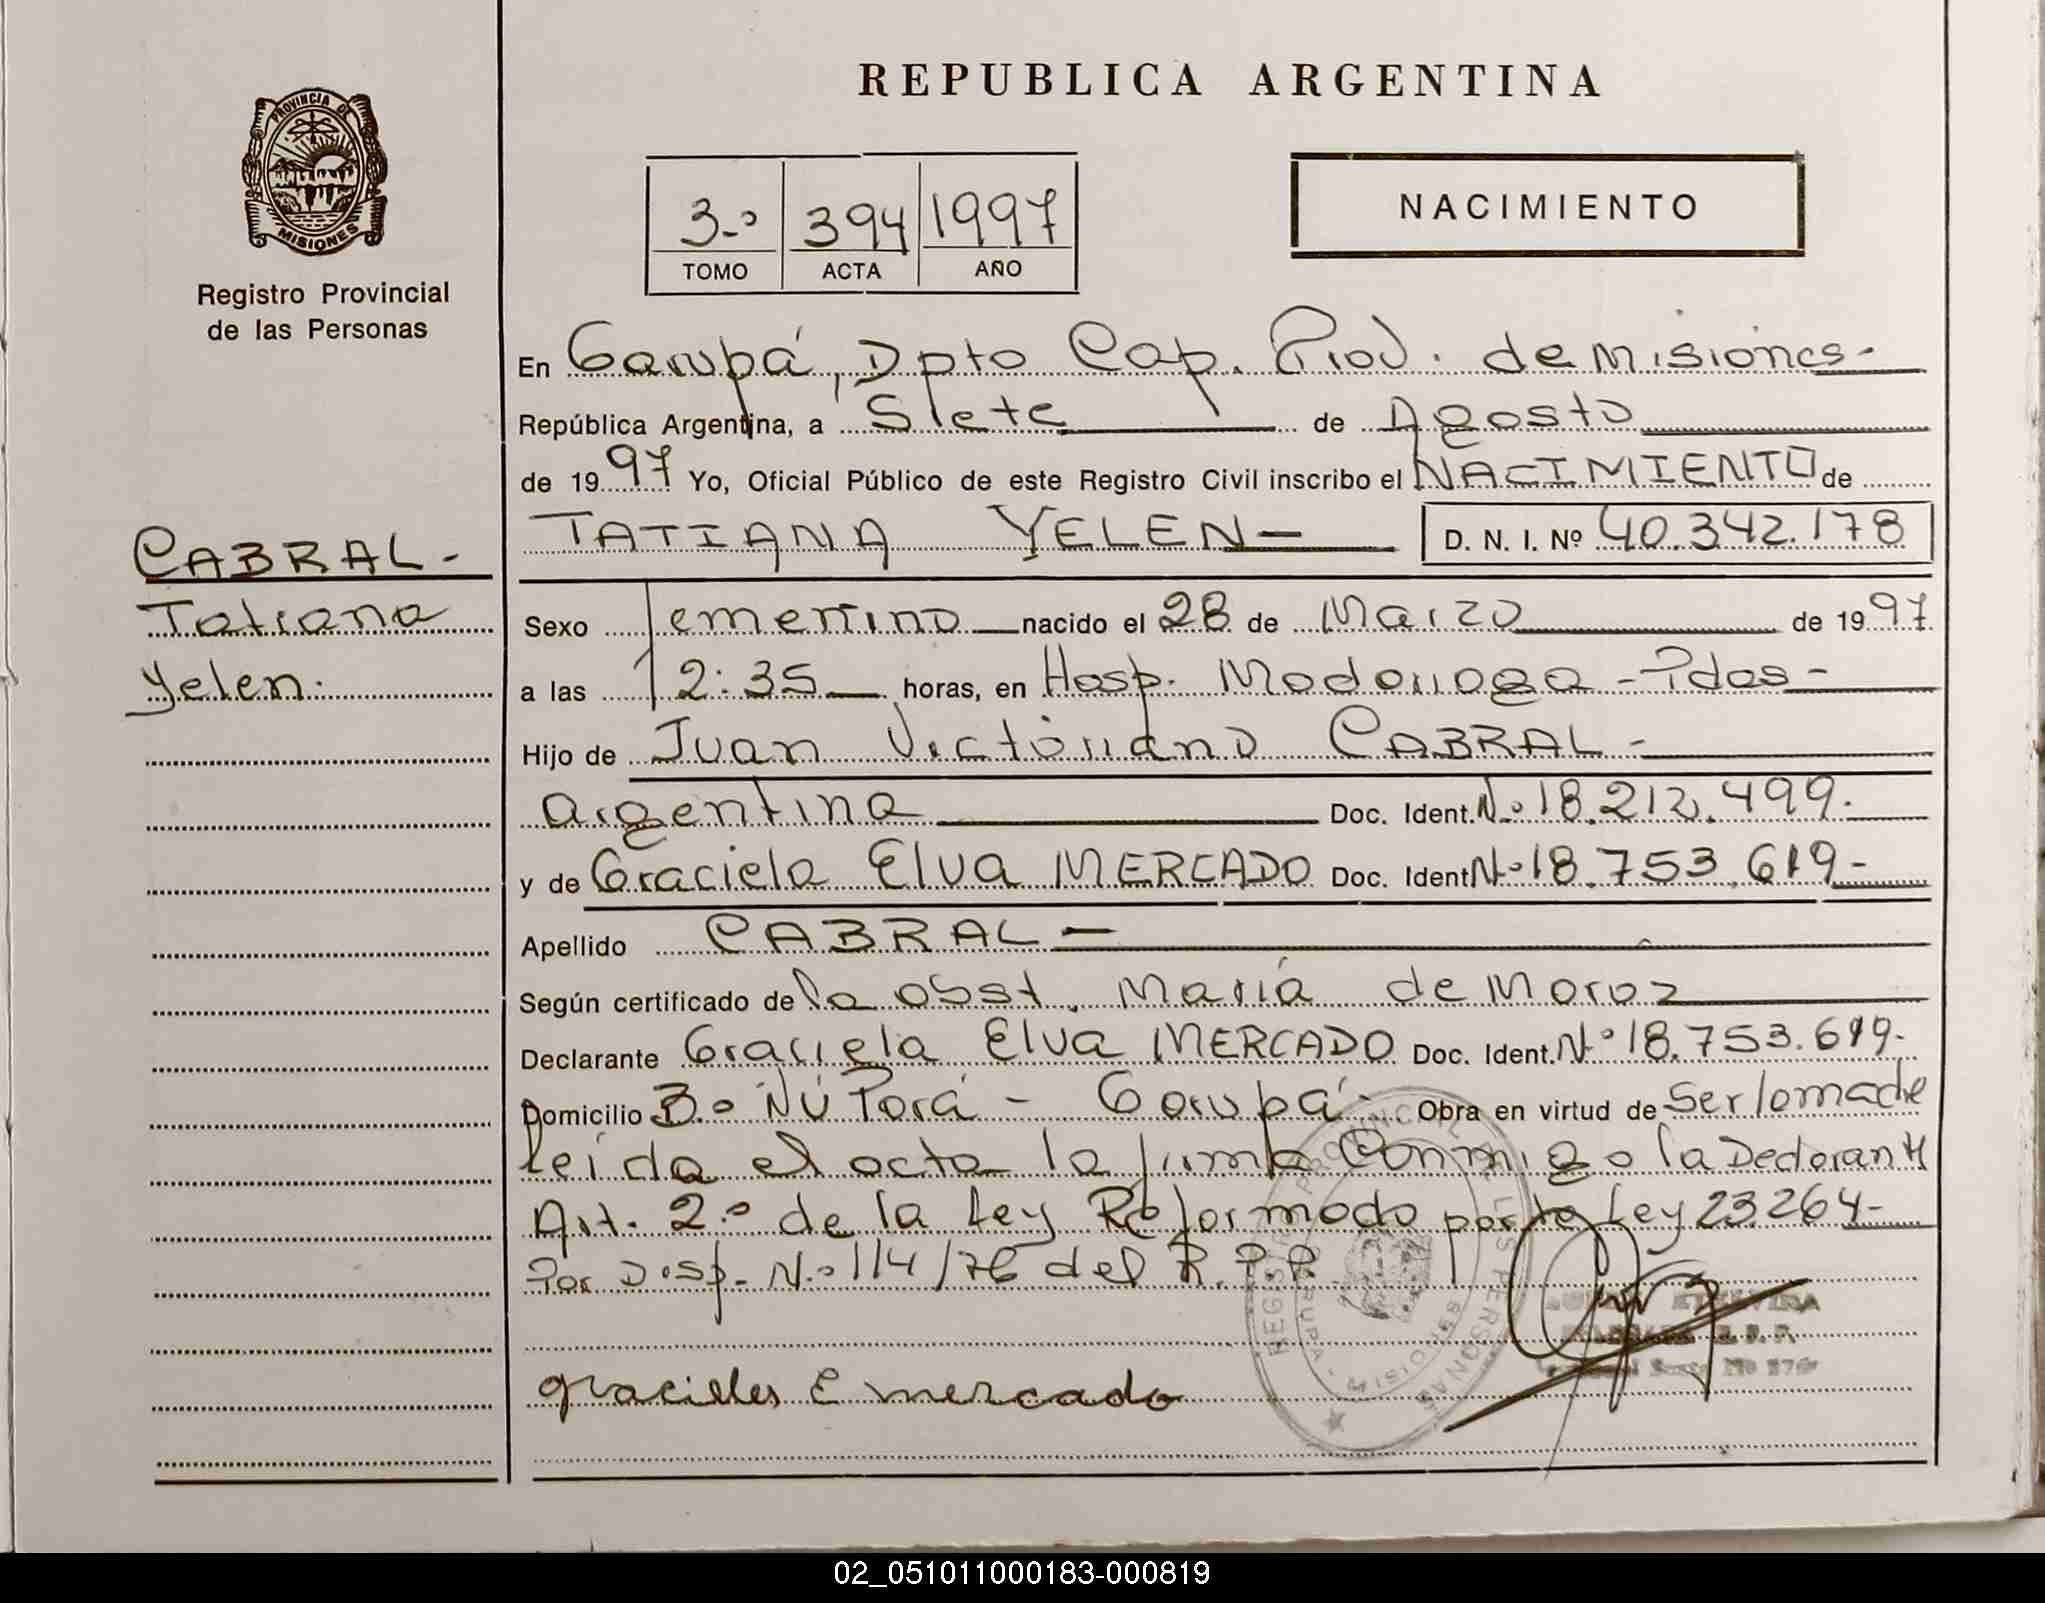 REPUBLICA ARGENTINA
PROVINCIA DE
MISIONES
Registro Provincial
de las Personas
3º 394 1997
TOMO ACTA AÑO
NACIMIENTO
En Garupá, Dpto Cap. Prov. de Misiones-
República Argentina, a Siete de Agosto
de 1997 Yo, Oficial Público de este Registro Civil inscribo el NACIMIENTO de
TATIANA YELEN- D. N. I. Nº 40.342.178
CABRAL-
Tatiana
Yelen.
Sexo femenino nacido el 28 de Marzo de 1997
a las 12:35 horas, en Hosp. Madariaga - Pdas-
Hijo de Juan Victoriano CABRAL-
argentina Doc. Ident. Nº 18.212.499.
y de Graciela Elva MERCADO Doc. Ident Nº 18.753.619-
Apellido CABRAL-
Según certificado de la obst. María de Moroz
Declarante Graciela Elva MERCADO Doc. Ident. Nº 18.753.619-
Domicilio Bº Ñu Porá - Garupá- Obra en virtud de Ser la madre
Leída el acta la firma Conmigo la Declarante
Art. 2º de la Ley Reformado por la Ley 23.264-
Por Disp. Nº 114/76 del R.P.P.
REGISTRO PROVINCIAL DE LAS PERSONAS
GARUPA - MISIONES
E mercado
02_051011000183-000819